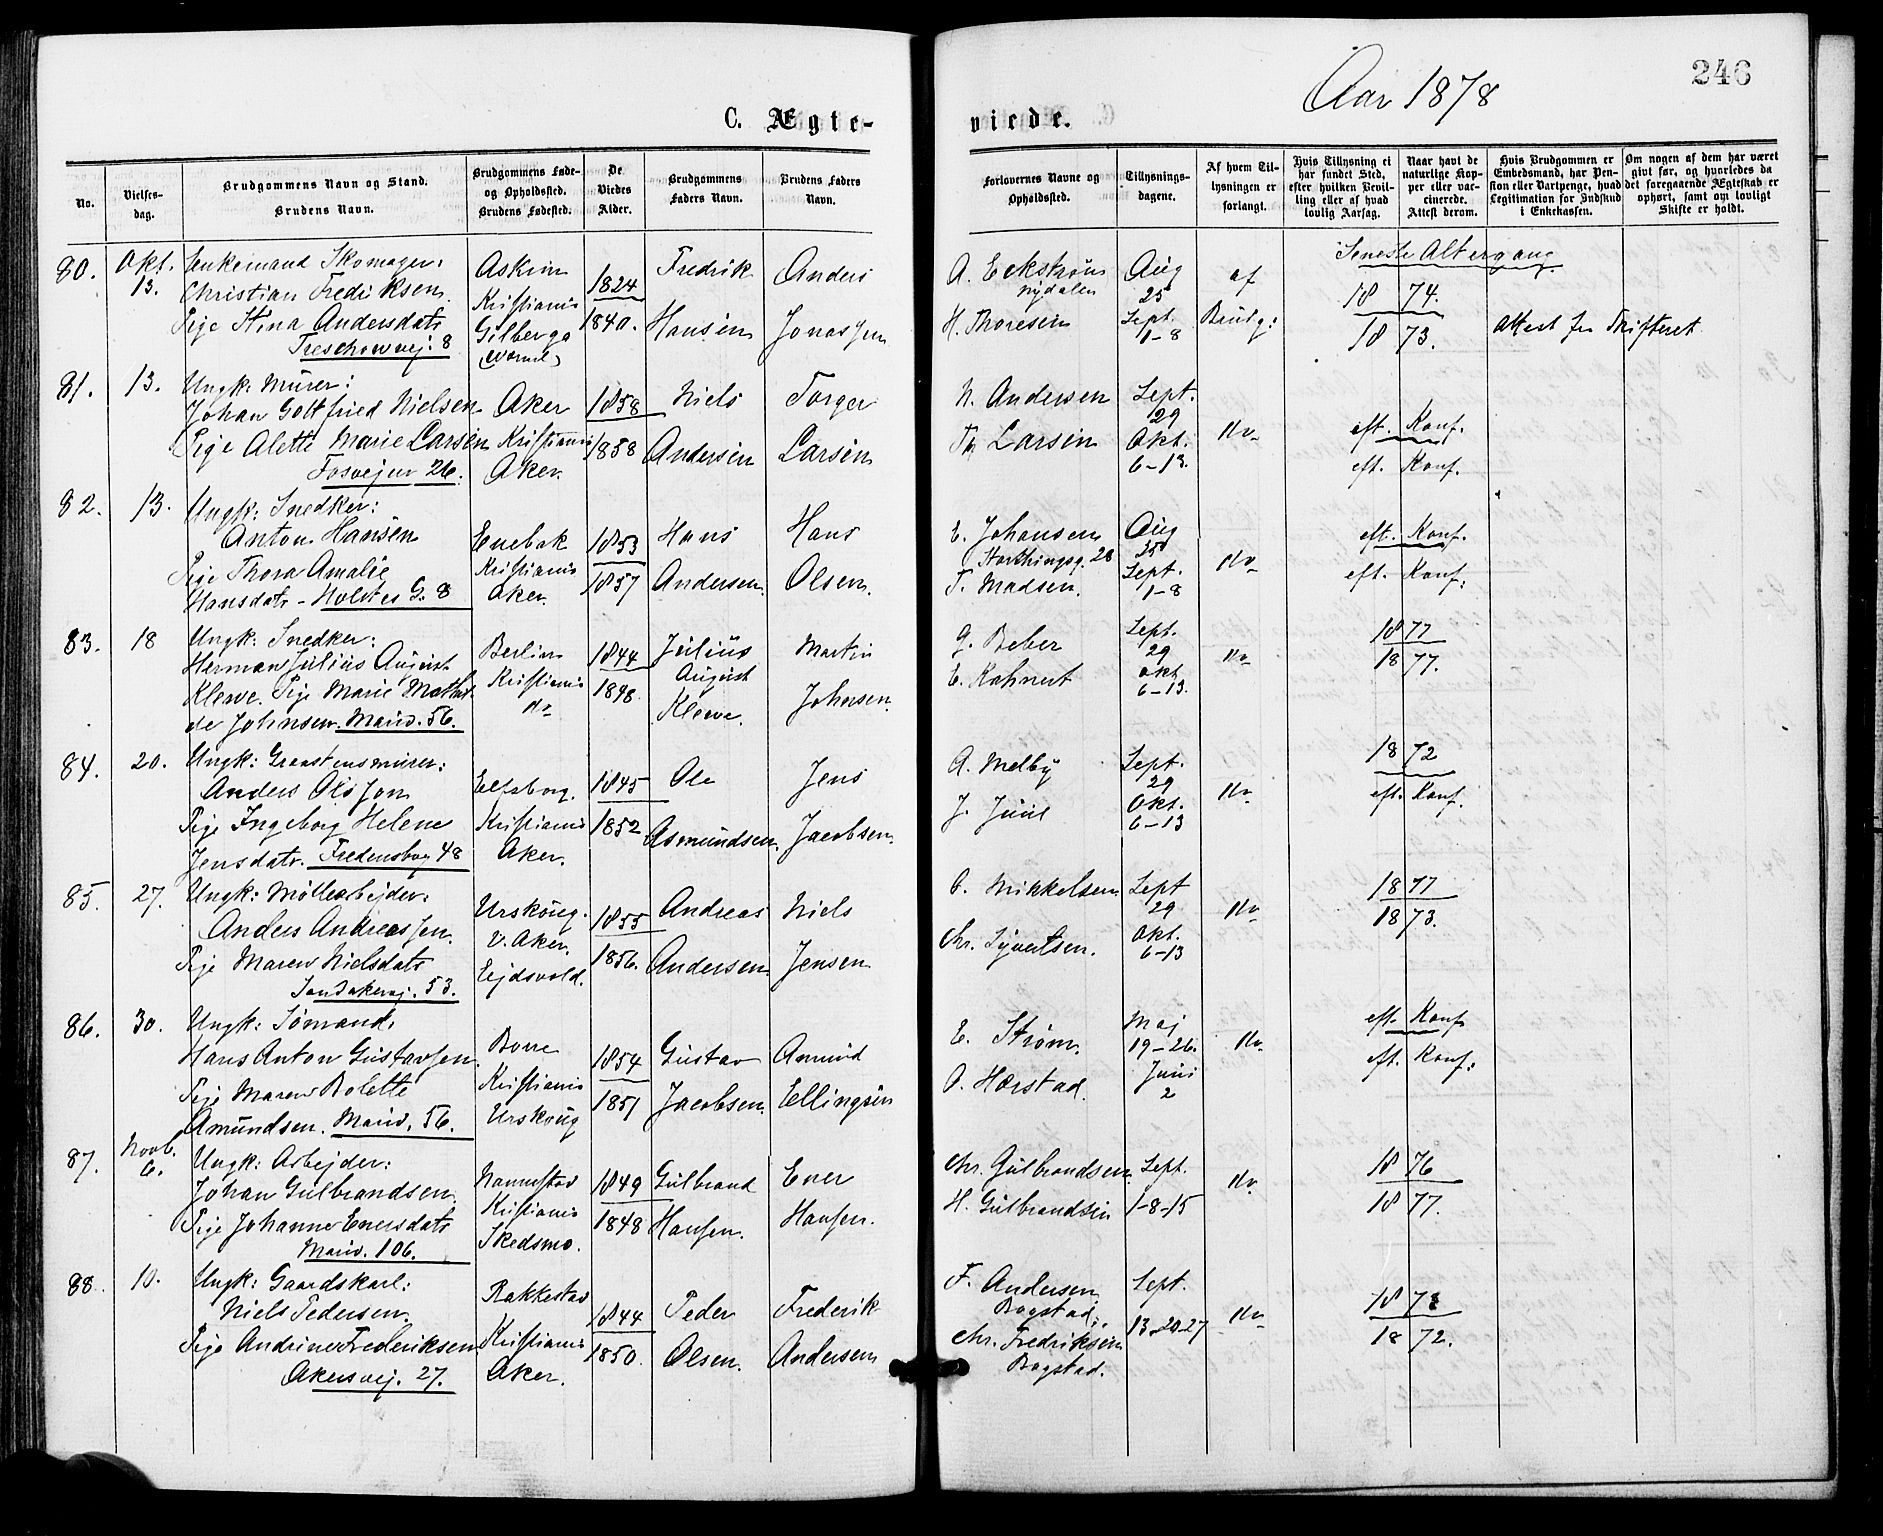 246
Aar 1878
C. Ægte- viede.
No.
Vielses-
dag.
Brudgommens Navn og Stand.
Brudens Navn.
Brudgommens Føde-
og Opholdssted.
Brudens Fødested.
De
Viedes
Alder.
Brudgommens
Faders Navn.
Brudens Faders
Navn.
Forlovernes Navne og
Opholdssted.
Tillysnings-
dagene.
Af hvem Til-
lysningen er
forlangt.
Hvis Tillysning ei
har fundet Sted,
efter hvilken Bevil-
ling eller af hvad
lovlig Aarsag.
Naar havt de
naturlige Kop-
per eller vac-
cinerede.
Attest derom.
Hvis Brudgommen er
Embedsmand, har Pen-
sion eller Vartpenge, hvad
Legitimation for Indskud
i Enkekassen.
Om nogen af dem har været
givt før, og hvorledes da
det foregaaende Ægteskab er
ophørt, samt om lovligt
Skifte er holdt.
Seneste Altergang
80.
Okt.
13.
Enkemand Skomager:
Christian Fredriksen
Pige Stina Andersdatr
Treschowvej: 8
Askim
Kristiania
Gilberga
1824
1840.
Fredrik
Hansen
Anders
Jonassen
A. Eckstrøm
Nydalen
H. Thoresen
Aug
25
Sept.
1-8
af
Brudg:
18 74.
18 73.
Attest fra Skifteret
81.
13.
Ungk: Murer:
Johan Gottfried Nielsen
Pige Alette Marie Larsen
Fosvejen 26.
Aker
Kristiania
Aker.
1858
1858
Niels
Andersen
Torger
Larsen
N. Andersen
Th Larsen
Sept.
29
Okt.
6-13.
do
eft. Konf.
eft. Konf.
82.
13.
Ungk: Snedker:
Anton Hansen
Pige Thora Amalie
Hansdatr - Holstes G. 8
Enebak
Kristiania
Aker.
1853
1857
Hans
Andersen
Hans
Olsen.
E. Johansen
Storthingsg. 28
T. Madsen.
Aug
25
Sept.
1-8
do
eft. Konf.
eft. Konf.
83.
18
Ungk: Snedker:
Herman Julius August
Klewe. Pige Marie Mathil
de Johnsen. Marid. 56.
Berlin
Kristiania
do
1844
1848.
Julius
August
Klewe.
Martin
Johnsen.
G. Beber
E. Kahnert
Sept.
29
Okt
6-13.
do
18 77
18 77.
84.
20.
Ungk: Graastensmurer:
Anders Olssøn
Pige Ingeborg Helene
Jensdatr. Fredensborg 48
Elfsborg.
Kristiania
Aker.
1845
1852
Ole
Asmundsen.
Jens
Jacobsen.
A. Melby
J. Juul
Sept.
29
Okt.
6-13
do
18 72
eft. Konf.
85.
27.
Ungk: Møllearbejder:
Anders Andreassen
Pige Maren Nielsdatr
Sandakervej. 53.
Urskoug.
V. Aker.
Ejdsvold.
1855
1856.
Andreas
Andersen
Niels
Jensen
O. Mikkelsen
Chr. Syvertsen.
Sept
29
Okt.
6-13
do
18 77
18 73.
86.
30.
Ungk: Sømand:
Hans Anton Gustavsen.
Pige Maren Bolette
Amundsen. Marid. 56.
Borre
Kristiania
Urskoug
1854
1851
Gustav
Jacobsen.
Amund
Ellingsen
E. Strøm.
O. Harstad.
Maj
19-26.
Juni
2
do
eft. Konf
eft. Konf.
87.
Novb.
6.
Ungk: Arbejder:
Johan Gulbrandsen
Pige Johanne Enersdatr
Marid. 106.
Nannestad
Kristiania
Skedsmo.
1849
1848
Gulbrand
Hansen.
Ener
Hansen.
Chr. Gulbrandsen
H. Gulbrandsen
Sept.
1-8-15
do
18 76
18 77.
88.
10.
Ungk: Gaardskarl:
Niels Pedersen
Pige Andrine Frederiksen
Akersvej. 27.
Rakkestad
Kristiania
Aker.
1844
1850.
Peder
Olsen.
Frederik
Andersen
F. Andersen
Bogstad.
Chr. Fredriksen
Bogstad.
Sept.
13-20-27
do
18 72.